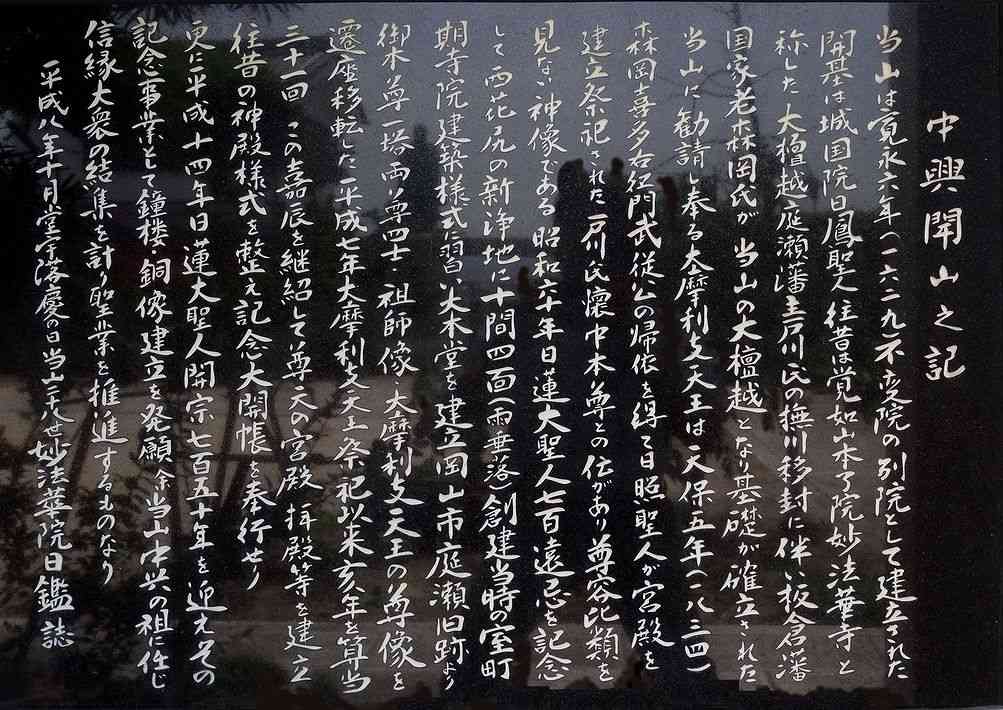 中興開山之記
当山は寛永六年(一六二九不変院の別院として建立された
開基は城国院日鳳聖人 往昔は覚如山本了院妙法華寺と
称した 大檀越庭瀬藩主戸川氏の撫川移封に伴い板倉藩
国家老森岡氏が 当山の大檀越となり基礎が確立された
当山に勧請し奉る大摩利支天王は 天保五年(一八三四)
森岡喜多右衛門武従公の帰依を得て日照聖人が宮殿を
建立祭祀された 戸川氏懐中本尊との伝があり 尊容比類を
見ない神像である 昭和六十年日蓮大聖人七百遠忌を記念
して 西花尻の新浄地に十間四面(雨垂落)創建当時の室町
期寺院建築様式に習い大本堂を建立 岡山市庭瀬旧跡より
御本尊一塔両尊四士・祖師像・大摩利支天王の尊像を
遷座移転した 平成七年大摩利支天王祭祀以来亥年を算当
三十一回 この嘉辰を継紹して尊天の宮殿 拝殿等を建立
往昔の神殿様式を整え記念大開帳を奉行せり
更に平成十四年日蓮大聖人開宗七百五十年を迎えその
記念事業として鐘楼 銅像建立を発願 余当山中興の祖に任じ
信縁大衆の結集を計り聖業を推進するものなり
平成八年十月堂宇落慶の日 当山二十八世妙法華院日鑑 誌